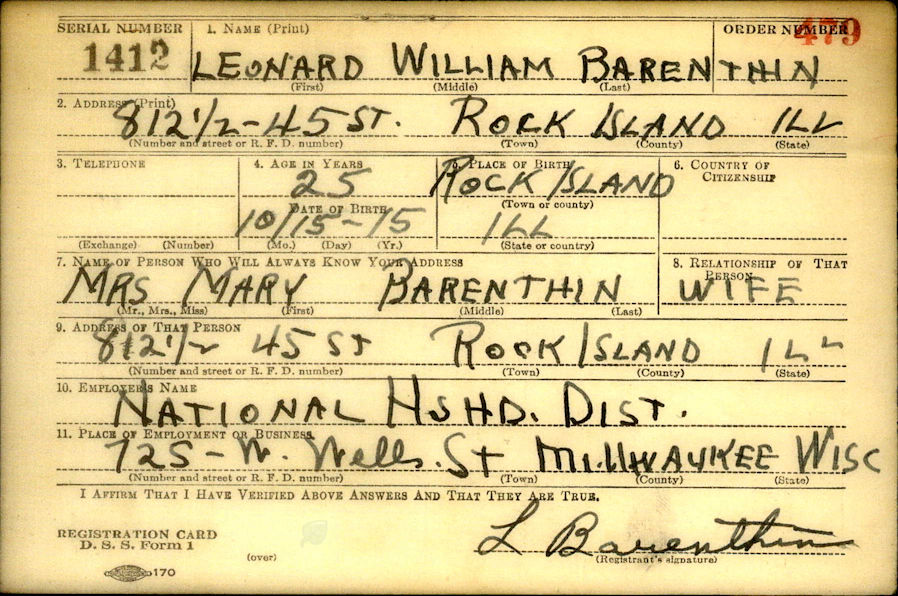 SERIAL NUMBER 1. NAME (Print) ORDER NUMBER
1412 LEONARD WILLIAM BARENTHIN 479
(First) (Middle) (Last)
2. ADDRESS (Print)
812 1/2 - 45 ST. ROCK ISLAND ILL
(Number and street or R. F. D. number) (Town) (County) (State)
3. TELEPHONE 4. AGE IN YEARS 5. PLACE OF BIRTH 6. COUNTRY OF CITIZENSHIP
25 ROCK ISLAND
DATE OF BIRTH (Town or county)
10/15-15 ILL
(Exchange) (Number) (Mo.) (Day) (Yr.) (State or country)
7. NAME OF PERSON WHO WILL ALWAYS KNOW YOUR ADDRESS 8. RELATIONSHIP OF THAT PERSON
MRS MARY BARENTHIN WIFE
(Mr., Mrs., Miss) (First) (Middle) (Last)
9. ADDRESS OF THAT PERSON
812 1/2 45 ST ROCK ISLAND ILL
(Number and street or R. F. D. number) (Town) (County) (State)
10. EMPLOYER'S NAME
NATIONAL HSHD. DIST.
11. PLACE OF EMPLOYMENT OR BUSINESS
725 - W. Wells. St MILLWAUKEE WISC
(Number and street or R. F. D. number) (Town) (County) (State)
I AFFIRM THAT I HAVE VERIFIED ABOVE ANSWERS AND THAT THEY ARE TRUE.
REGISTRATION CARD L Barenthin
D. S. S. Form 1 (over) (Registrant's signature)
170